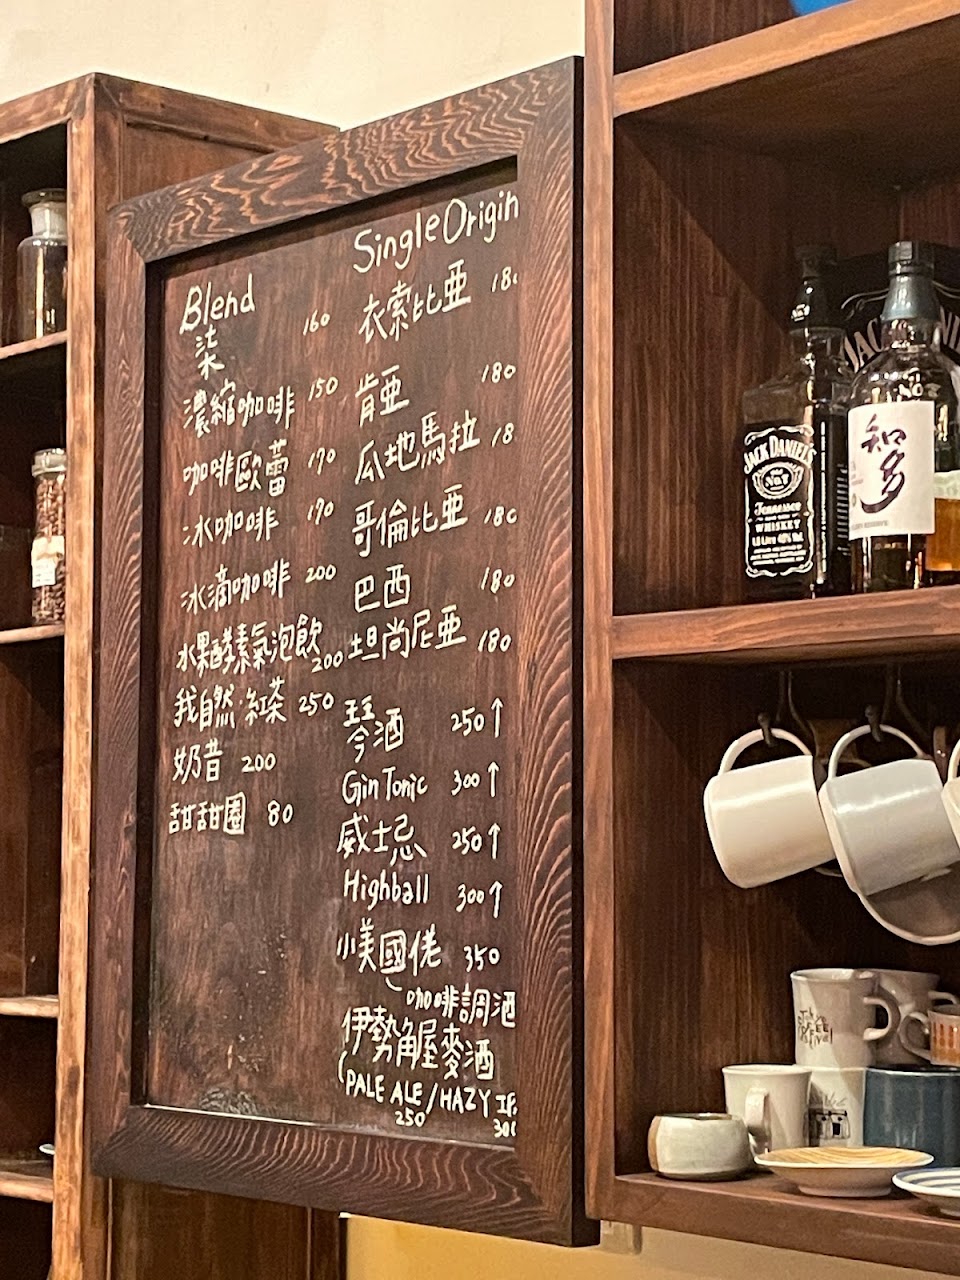 Blend
柒 160
濃縮咖啡 150
咖啡歐蕾 170
冰咖啡 190
冰滴咖啡 200
水果酵素氣泡飲 200
我自然·紅茶 250
奶昔 200
甜甜圈 80
Single Origin
衣索比亞 180
肯亞 180
瓜地馬拉 18
哥倫比亞 180
巴西 180
坦尚尼亞 180
琴酒 250↑
Gin Tonic 300↑
威士忌 250↑
Highball 300↑
小美國佬 350
咖啡調酒
伊勢角屋麥酒
(PALE ALE / HAZY IP
250 300
JACK DANIEL'S
No. 7
Tennessee
WHISKEY
知多